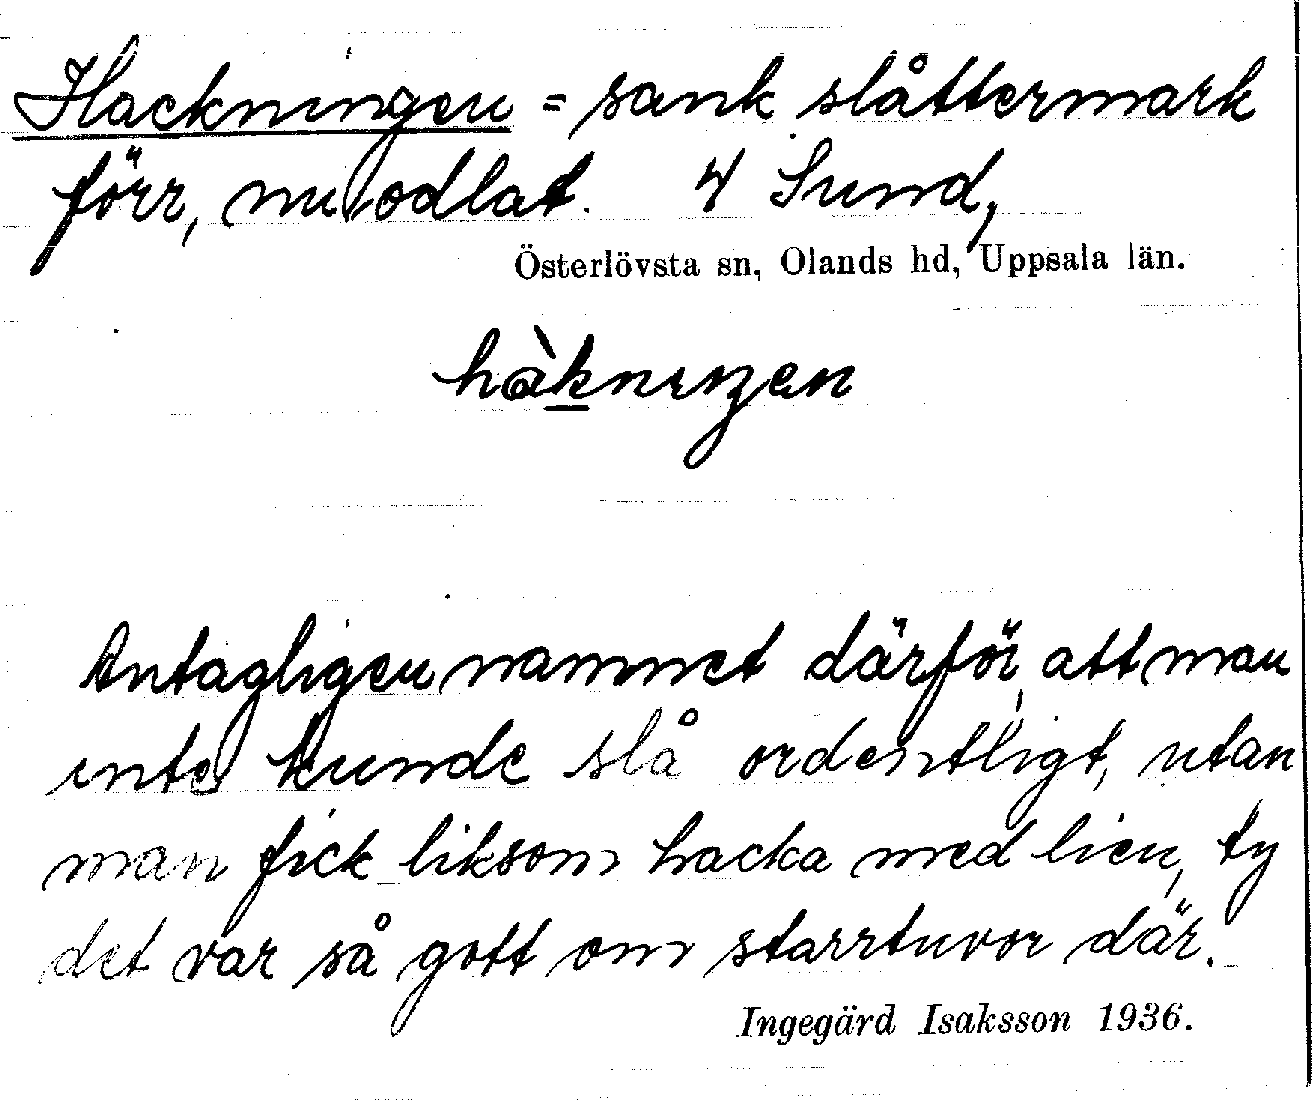 Hackningen = sank slåttermark
förr, nu odlat. 4 Sund,
Österlövsta sn, Olands hd, Uppsala län.
hàkniŋen
Antagligen namnet därför, att man
inte kunde slå ordentligt, utan
man fick liksom hacka med lien, ty
det var så gott om starrtuvor där.
Ingegärd Isaksson 1936.